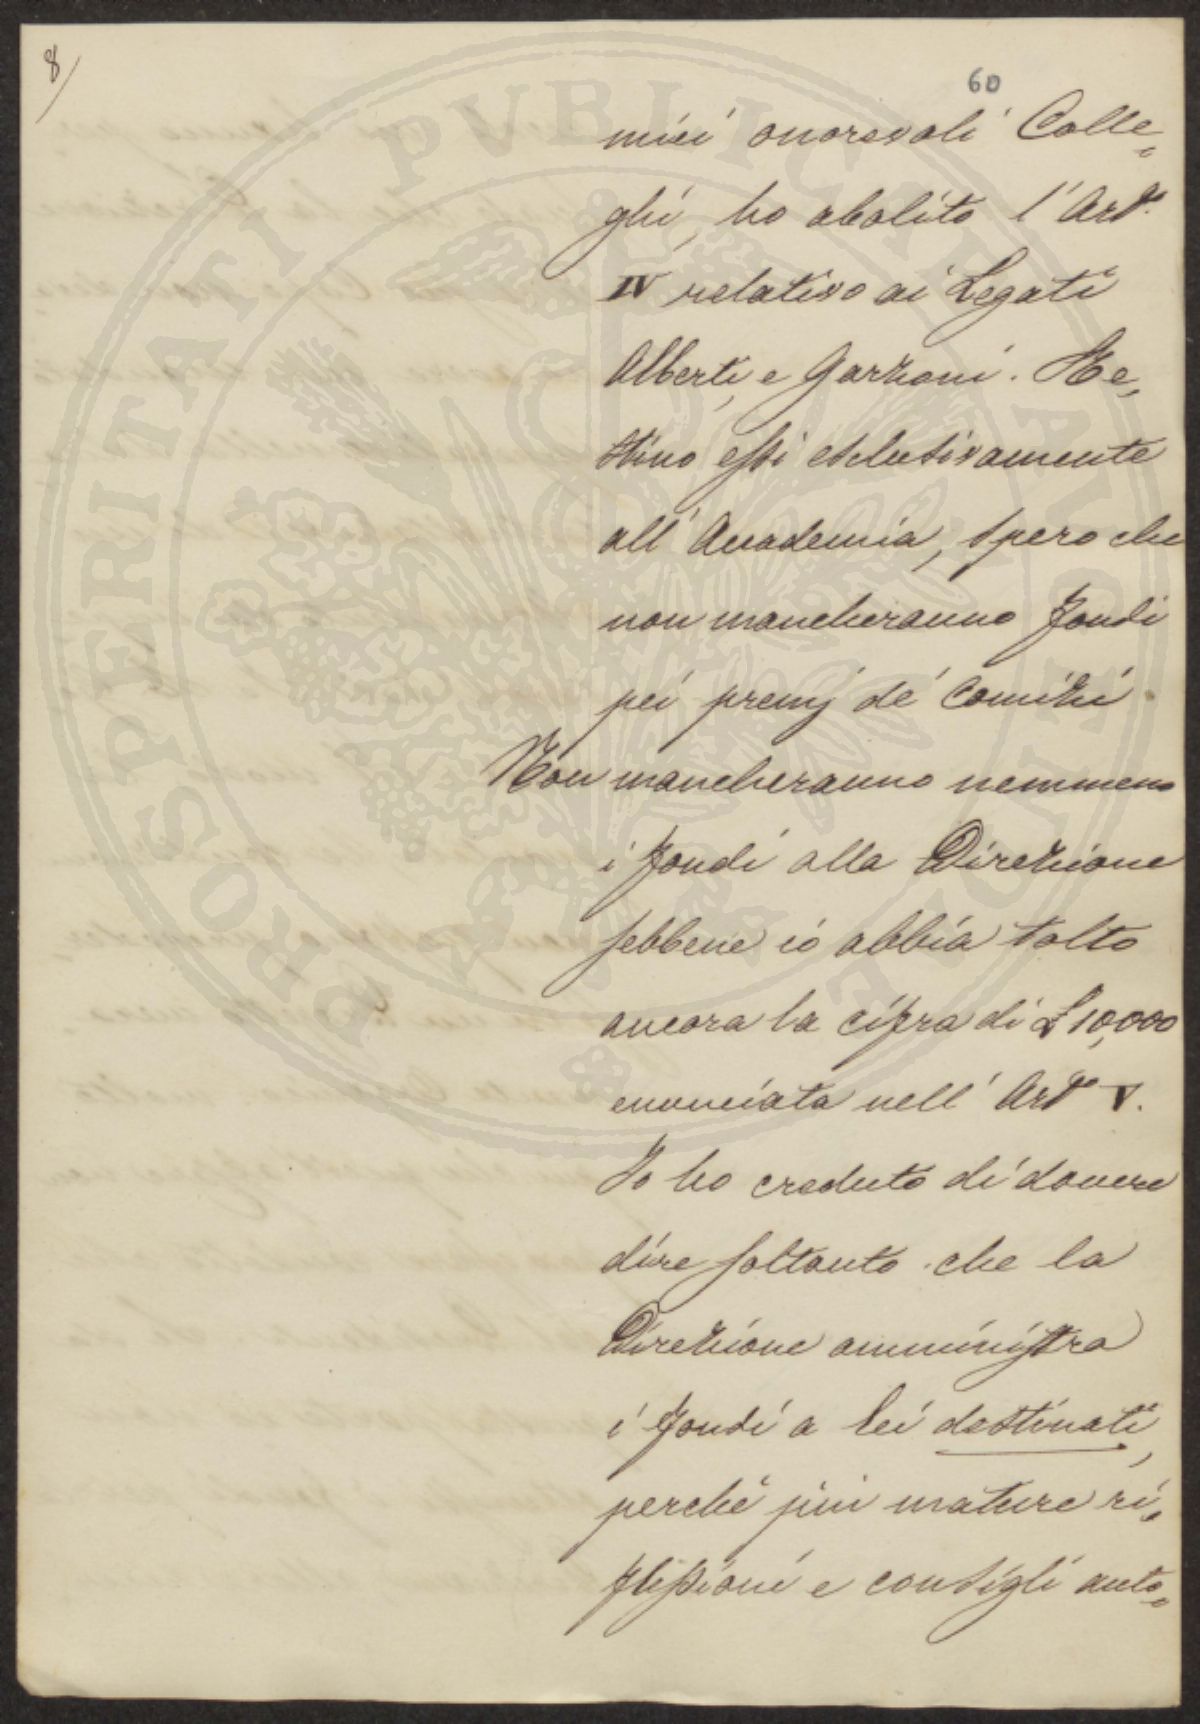 8/
60
miei onorevoli Colle=
ghi, ho abolito l'Art.º
IV relativo ai Legati
Alberti, e Garzoni. Re=
stino essi esclusivamente
all'Accademia, spero che
non mancheranno fondi
pei premj de' Comizi.
Non mancheranno nemmeno
i fondi alla Direzione
sebbene io abbia tolto
ancora la cifra di £ 10,000
enunciata nell'Artº V.
Io ho creduto di dovere
dire soltanto che la
Direzione amministra
i fondi a lei destinati,
perchè più mature ri=
flessioni e consigli auto=
PROSPERITATI PVBLICAE AVGENDAE